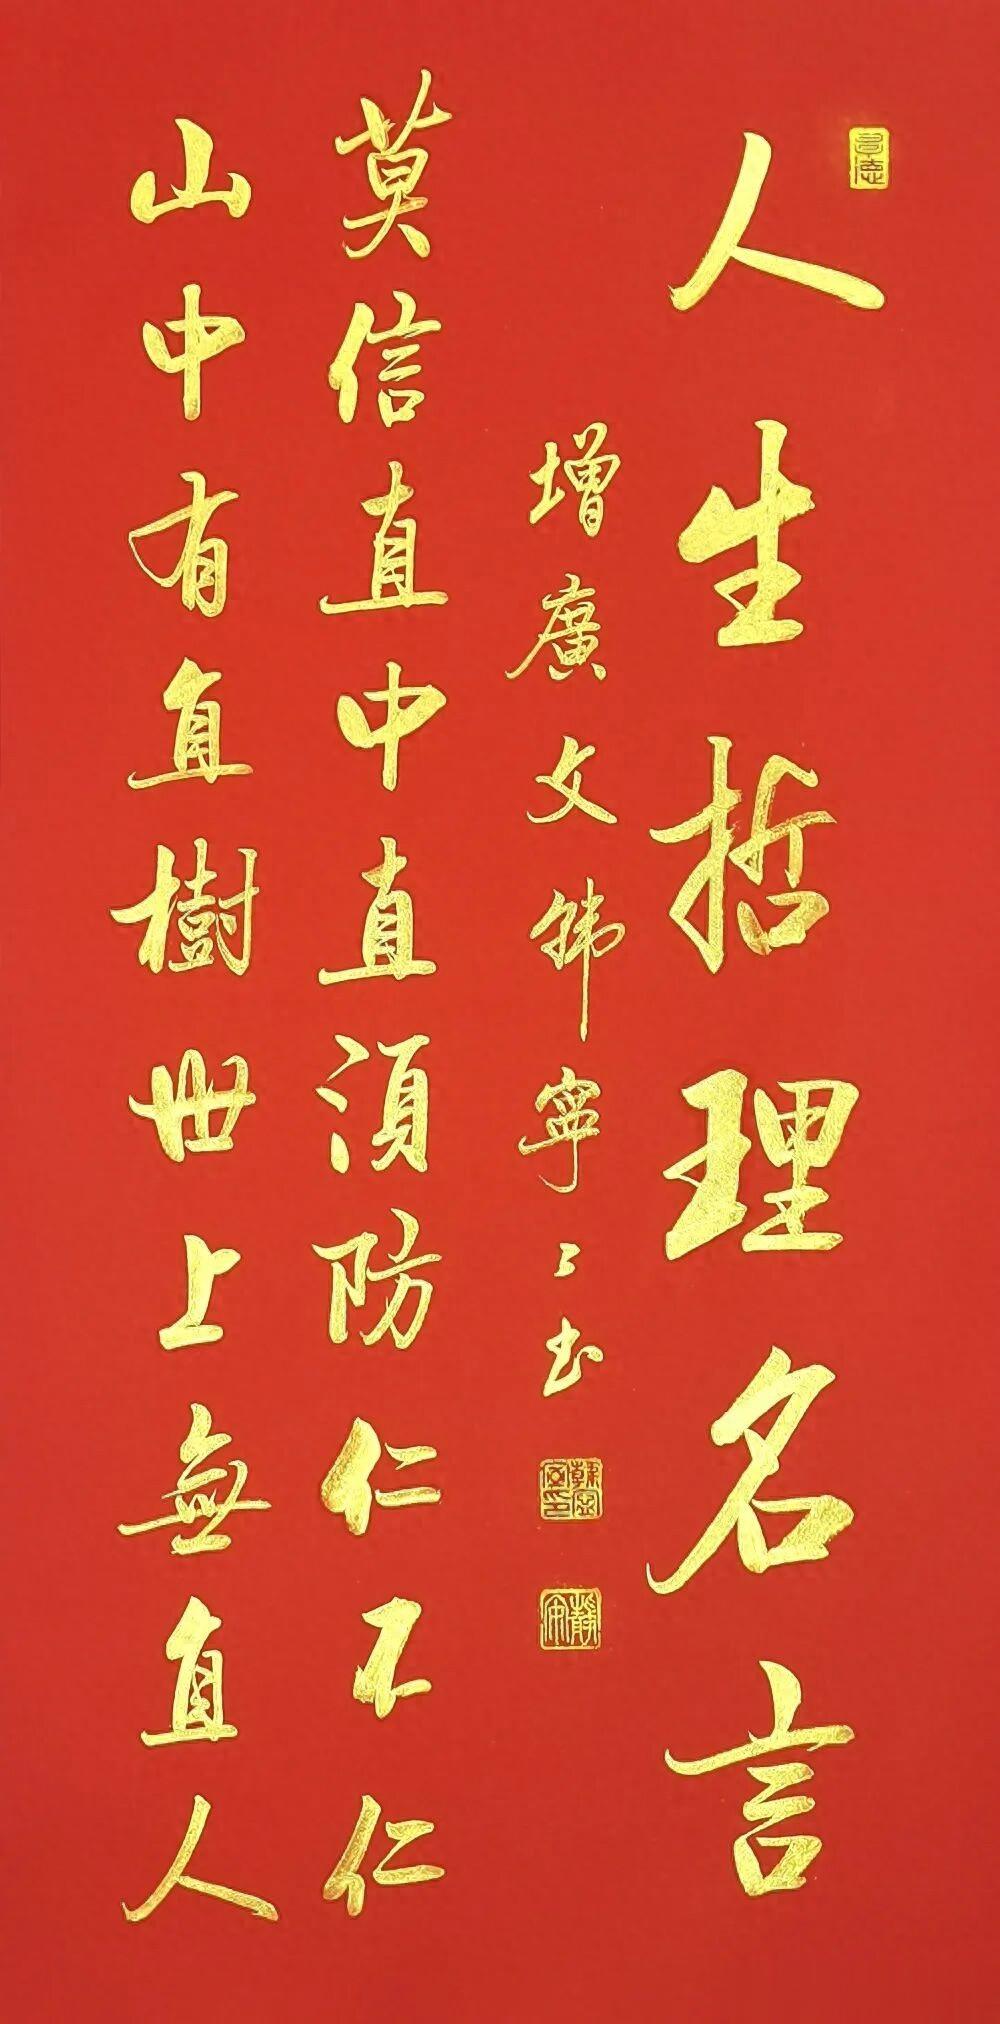 人生哲理名言
增廣文韩寧〻书
莫信直中直須防仁不仁
山中有直樹世上無直人